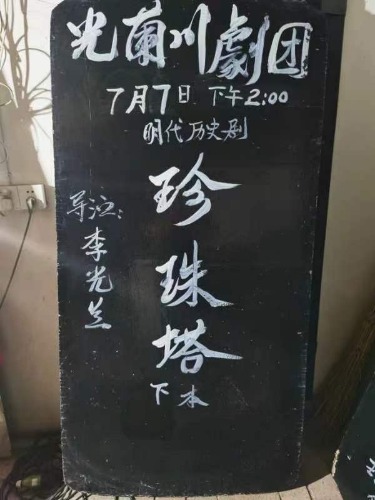 光蘭川劇团
7月7日 下午2:00
明代历史剧
珍珠塔
下本
导演:李光兰